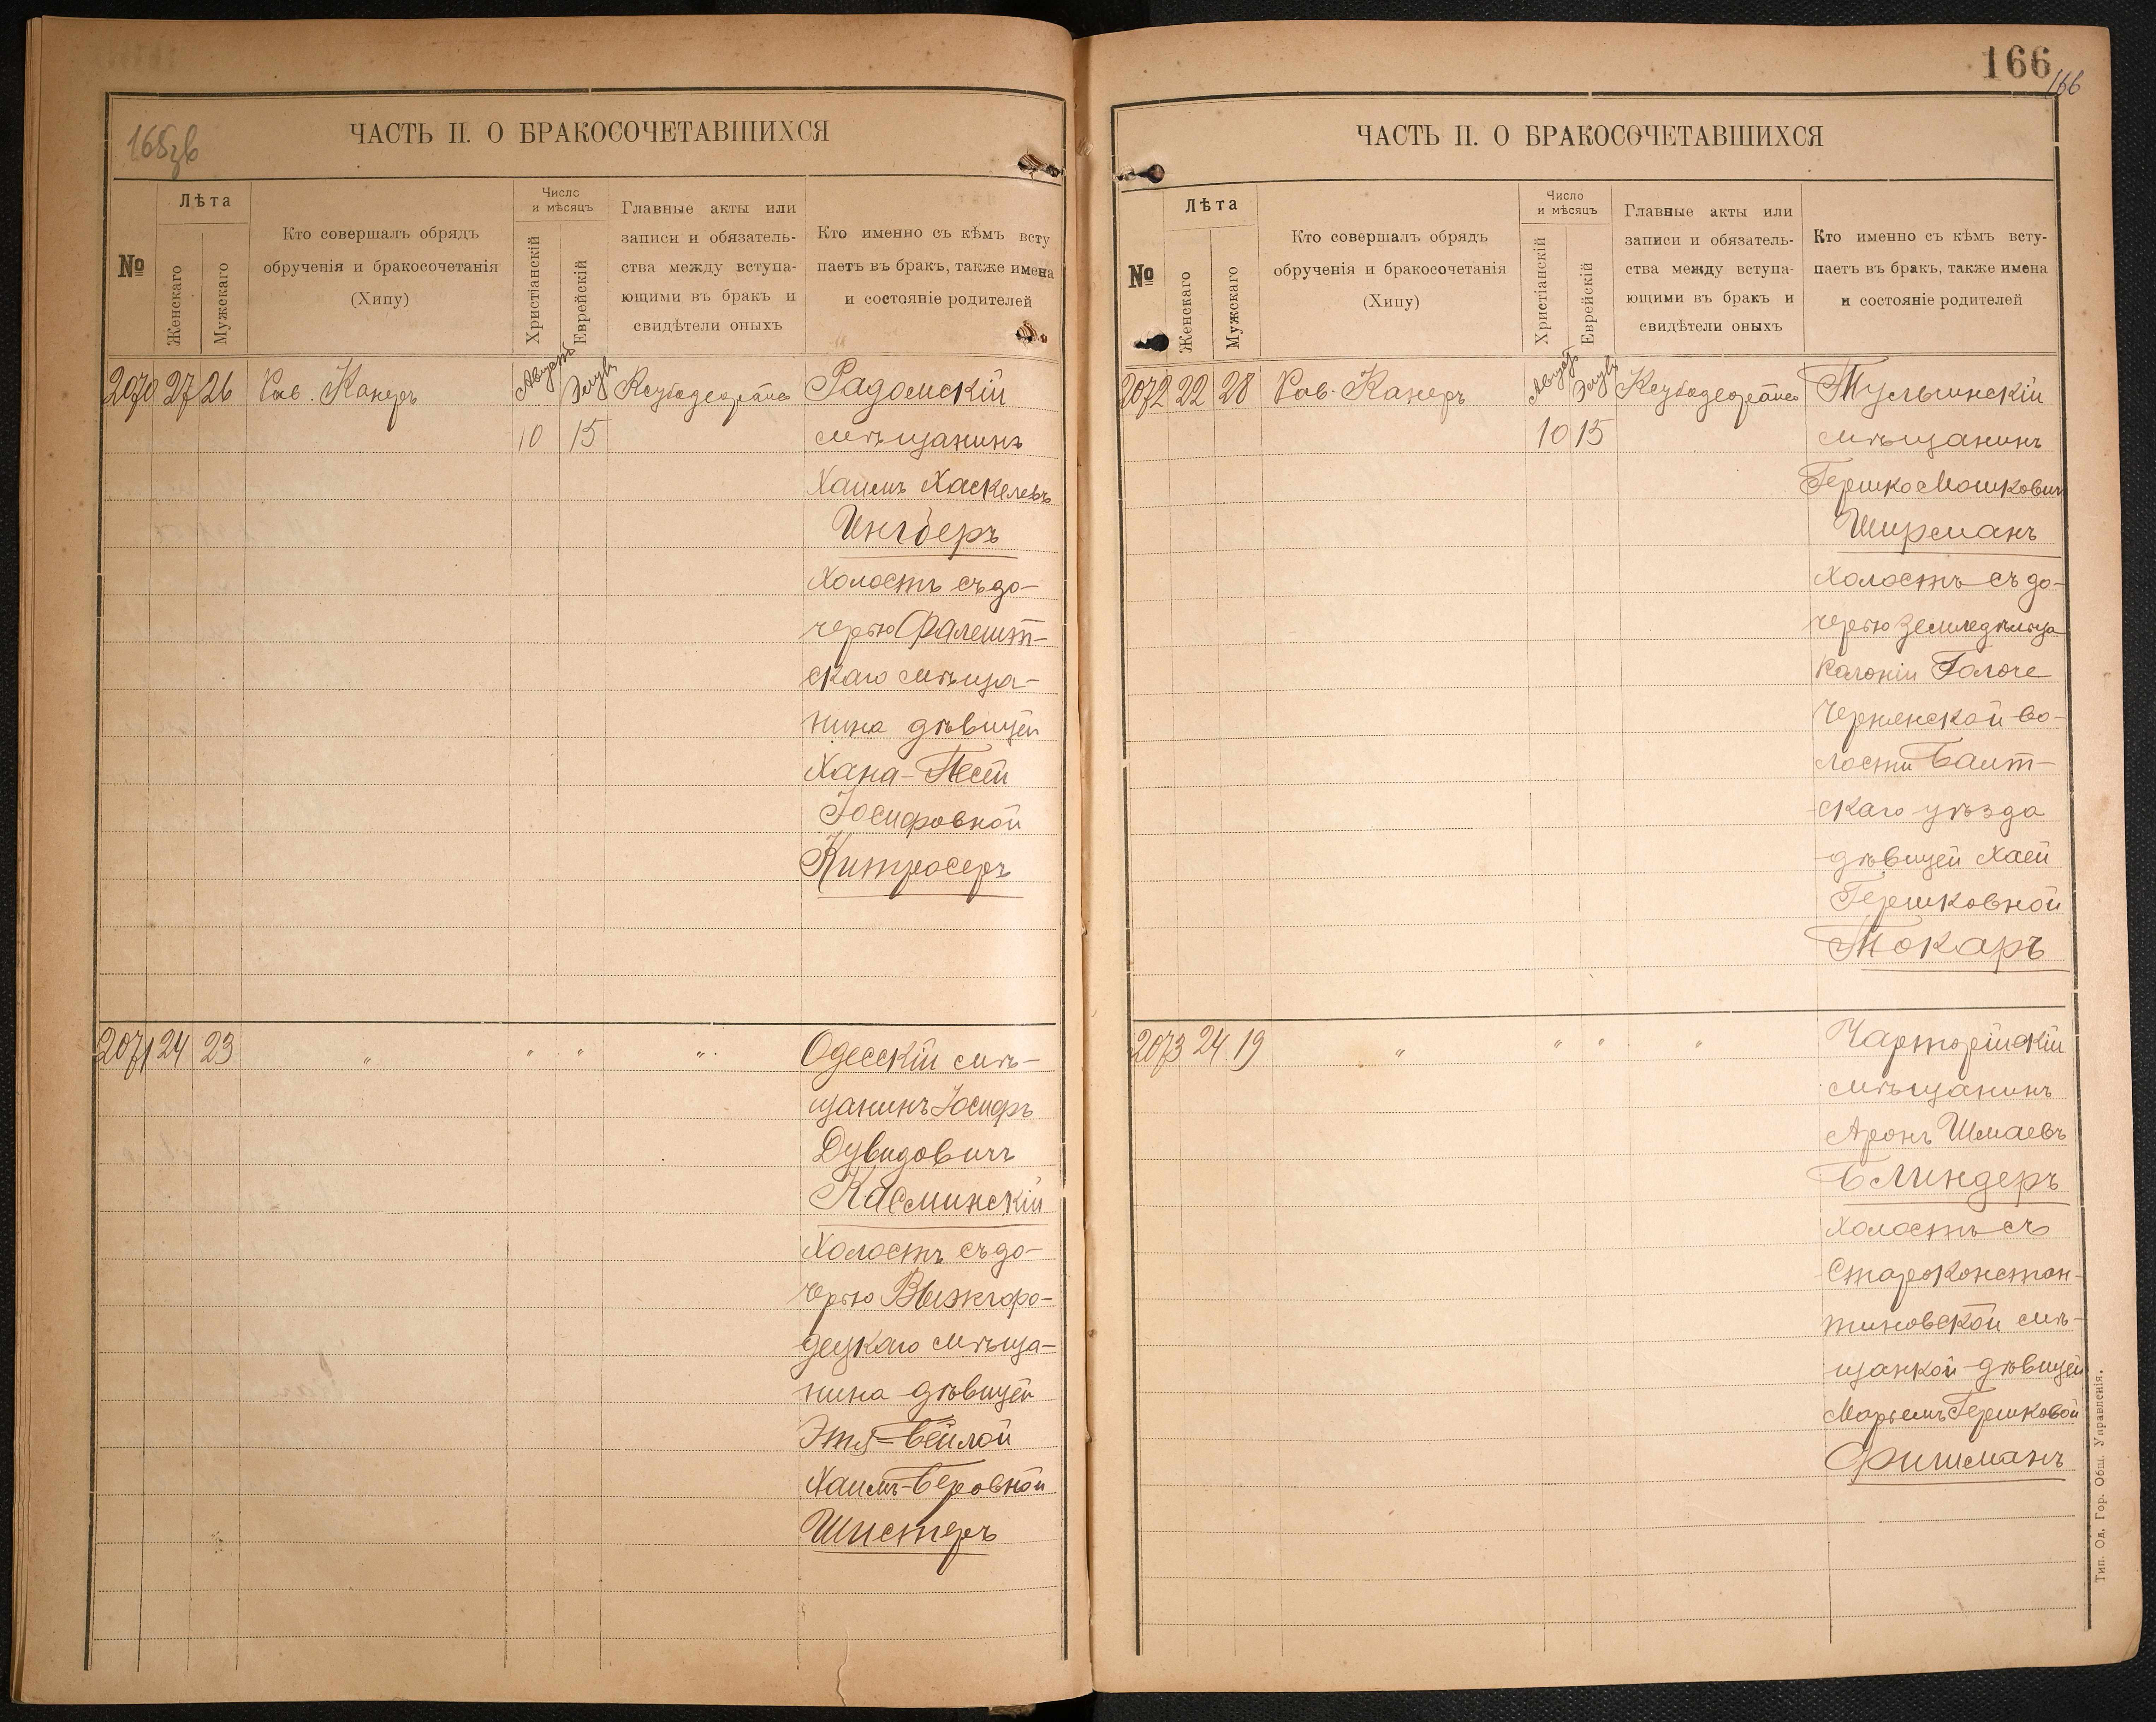 165зв
ЧАСТЬ II. О БРАКОСОЧЕТАВШИХСЯ
№
Лѣта
Женскаго
Мужскаго
Кто совершалъ обрядъ
обрученія и бракосочетанія
(Хипу)
Число
и мѣсяцъ
Христіанскій
Еврейскій
Главные акты или
записи и обязатель-
ства между вступа-
ющими въ бракъ и
свидѣтели оныхъ
Кто именно съ кѣмъ всту
паетъ въ бракъ, также имена
и состояніе родителей
2070 27 26 Рав. Канеръ Августъ Элулъ Радомскій
10 15 мѣщанинъ
Хаимъ Хаскелевъ
Ингберъ
холостъ съ до-
черью Фалешт-
скаго мѣща-
нина дѣвицей
Хана-Песей
Іосифовной
Китросеръ
2071 24 23 " " " " Одесскій мѣ-
щанинъ Іосифъ
Дувидовичъ
Касминскій
холостъ съ до-
черью Вышгоро-
децкаго мѣща-
нина дѣвицей
Этя-Бейлой
Хаимъ-Беровной
Шистеръ
166
166
ЧАСТЬ II. О БРАКОСОЧЕТАВШИХСЯ
№
Лѣта
Женскаго
Мужскаго
Кто совершалъ обрядъ
обрученія и бракосочетанія
(Хипу)
Число
и мѣсяцъ
Христіанскій
Еврейскій
Главные акты или
записи и обязатель-
ства между вступа-
ющими въ бракъ и
свидѣтели оныхъ
Кто именно съ кѣмъ всту-
паетъ въ бракъ, также имена
и состояніе родителей
2072 22 28 Рав. Канеръ Августъ Элулъ Тульчинскій
10 15 мѣщанинъ
Гершко Мошковичъ
Ширманъ
холостъ съ до-
черью земледѣльца
колоніи Голоче
Чернянской во-
лости Балт-
скаго уѣзда
дѣвицей Хаей
Гершковной
Токаръ
2073 24 19 " " " " Чарторійскій
мѣщанинъ
Аронъ Шмаевъ
Блиндеръ
холостъ съ
Староконстан-
тиновской мѣ-
щанкой дѣвицей
Марьемъ Гершковой
Фишманъ
Тип. Од. Гор. Общ. Управленія.